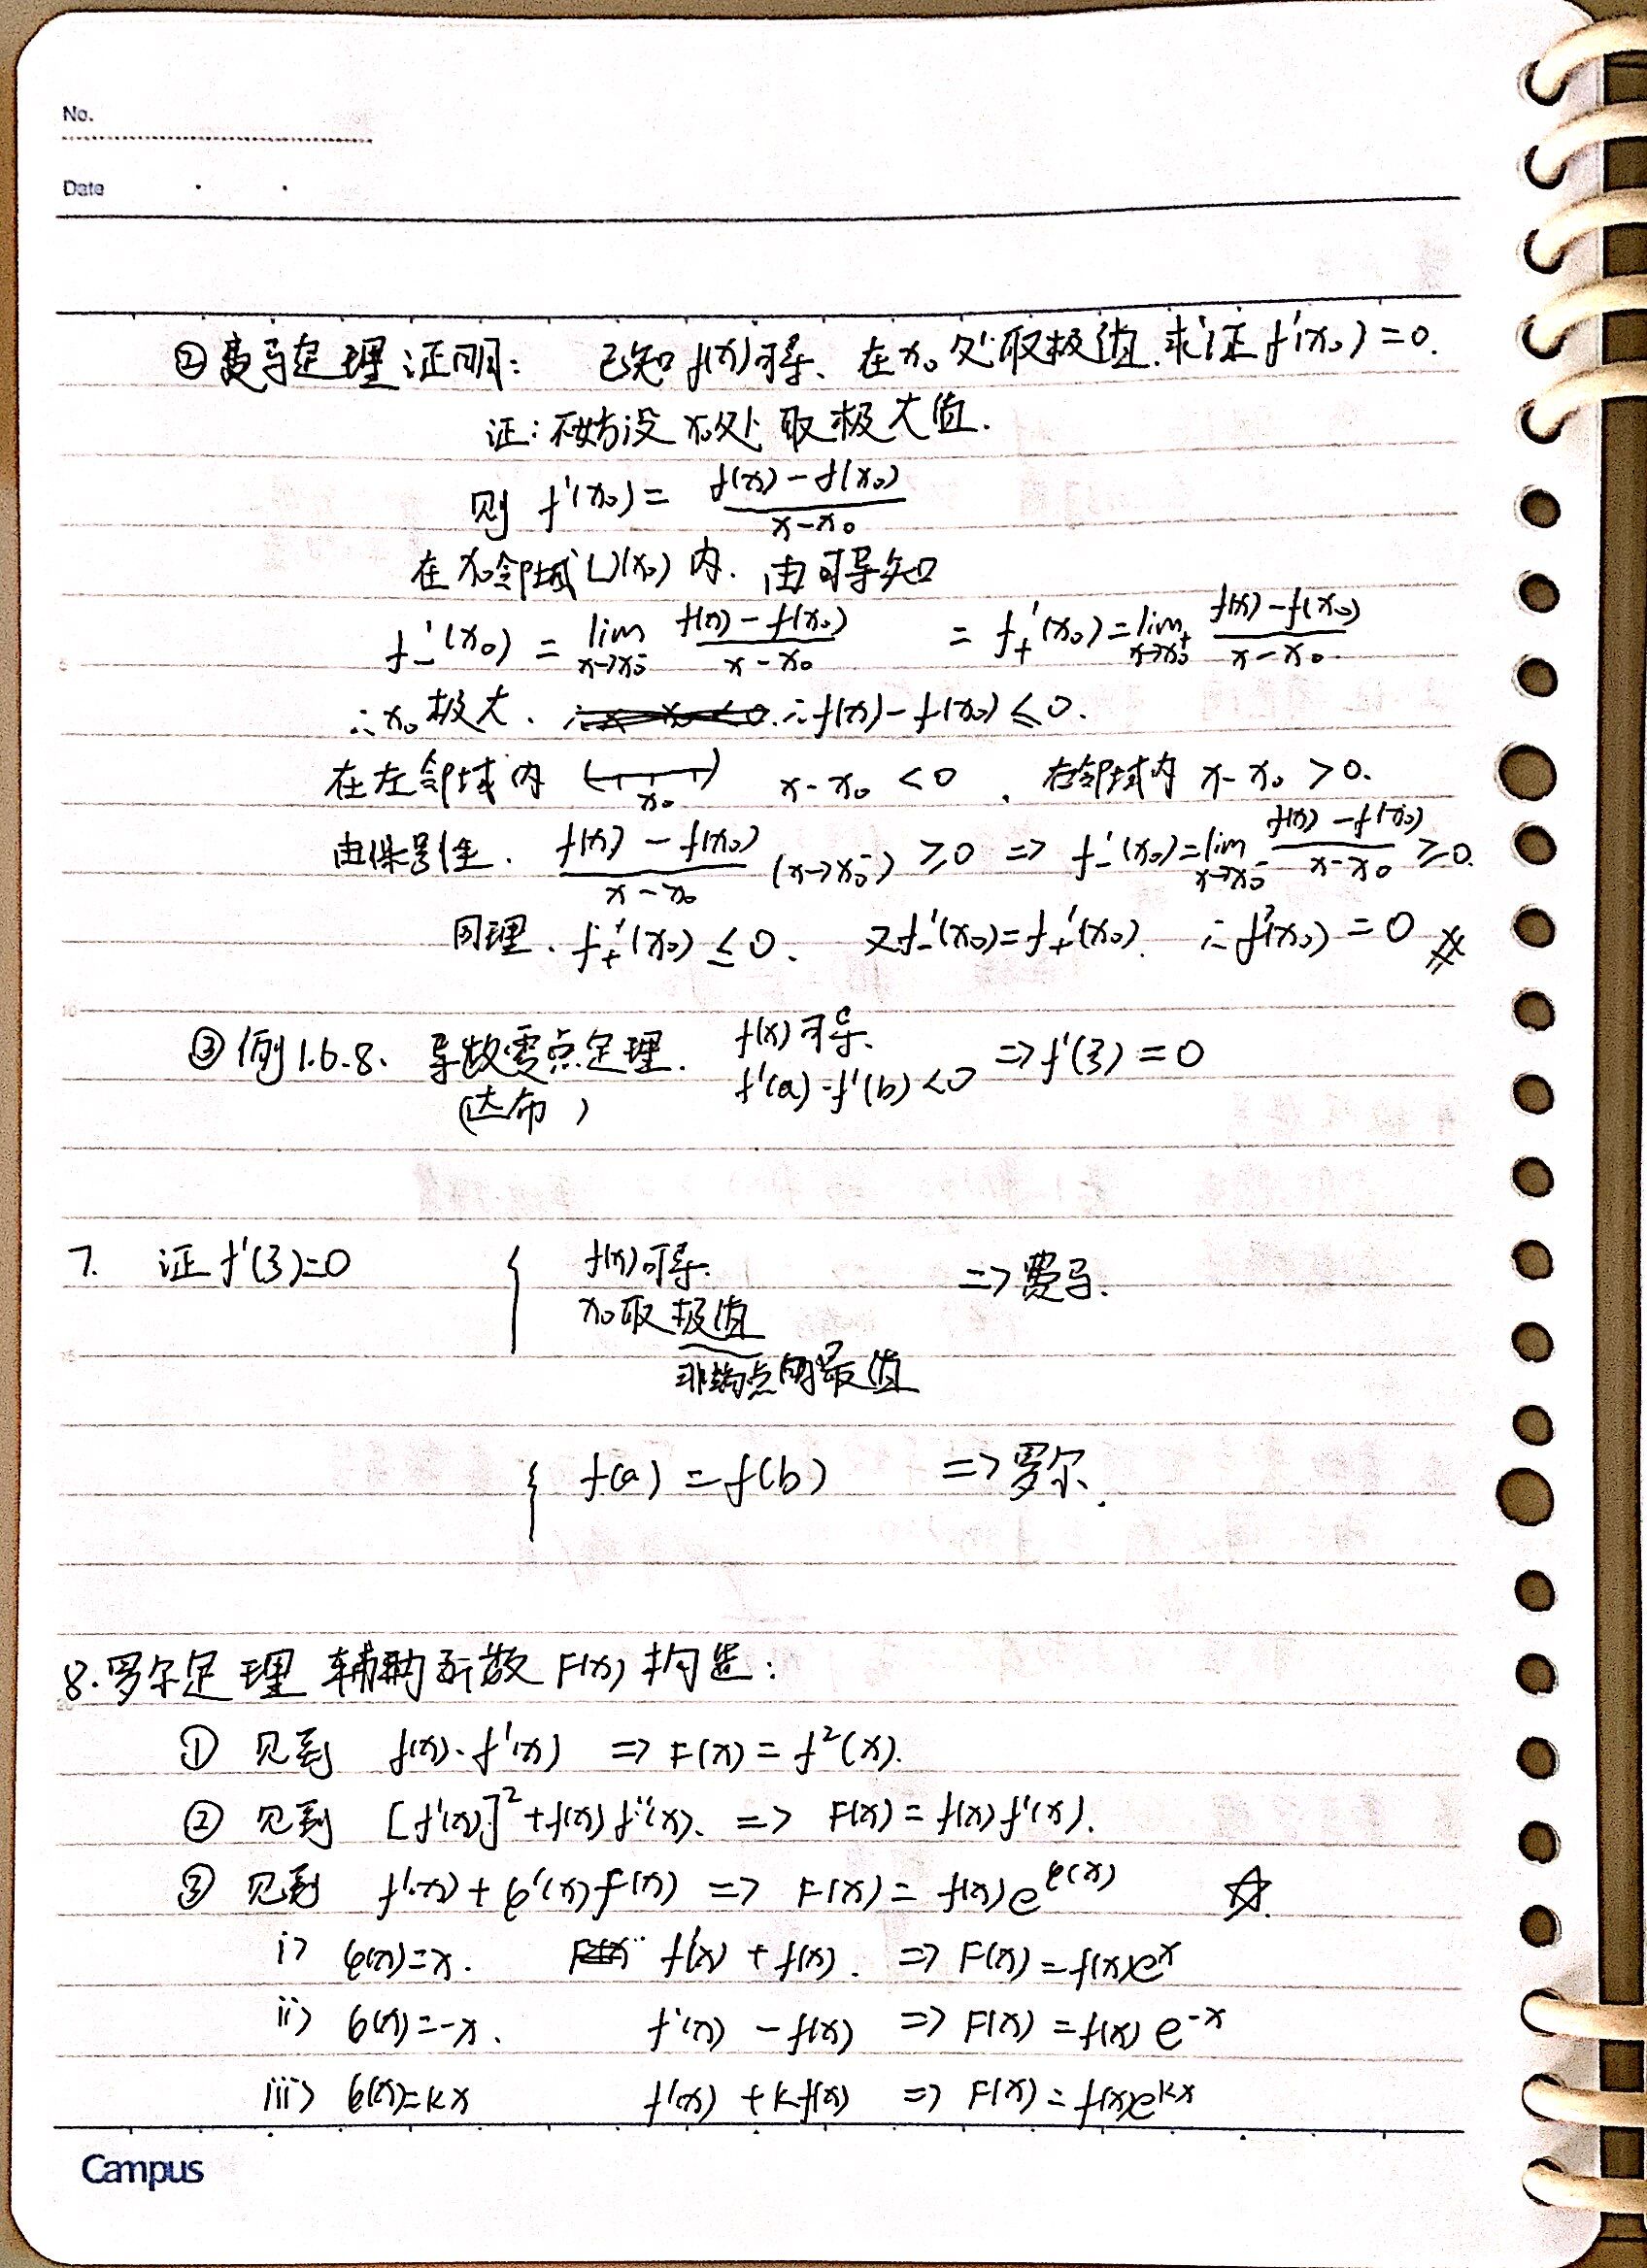 No.
Date
②费马定理证明: 已知f(x)可导、在x₀处取极值.求证f'(x₀)=0.
证:不妨设x₀处取极大值.
则 f'(x₀)= (f(x)-f(x₀))/(x-x₀)
在x₀邻域U(x₀)内.由可导知
f₋'(x₀) = lim_{x→x₀⁻} (f(x)-f(x₀))/(x-x₀) = f₊'(x₀)=lim_{x→x₀⁺} (f(x)-f(x₀))/(x-x₀)
∴x₀极大. ∴f(x)-f(x₀)≤0.
在左邻域内 x₀ x-x₀<0 . 右邻域内 x-x₀>0.
由保号性. (f(x)-f(x₀))/(x-x₀) (x→x₀⁻) ≥0 => f₋'(x₀)=lim_{x→x₀⁻} (f(x)-f(x₀))/(x-x₀) ≥0.
同理. f₊'(x₀)≤0. 又f₋'(x₀)=f₊'(x₀). ∴f'(x₀)=0 #
③例1.6.8. 导数零点定理. f(x)可导. f'(a)·f'(b)<0 =>f'(ξ)=0
(达布)
7. 证f'(ξ)=0 { f(x)可导. =>费马.
x₀取极值
非端点的最值
{ f(a)=f(b) =>罗尔.
8.罗尔定理 辅助函数F(x)构造:
① 见到 f(x)·f'(x) => F(x)=f²(x).
② 见到 [f'(x)]²+f(x)f''(x). => F(x)=f(x)f'(x).
③ 见到 f'(x)+φ'(x)f(x) => F(x)=f(x)e^{φ(x)} ☆.
i> φ(x)=x. f'(x)+f(x). => F(x)=f(x)eˣ
ii> φ(x)=-x. f'(x)-f(x) => F(x)=f(x)e⁻ˣ
iii> φ(x)=kx f'(x)+kf(x) => F(x)=f(x)e^{kx}
Campus